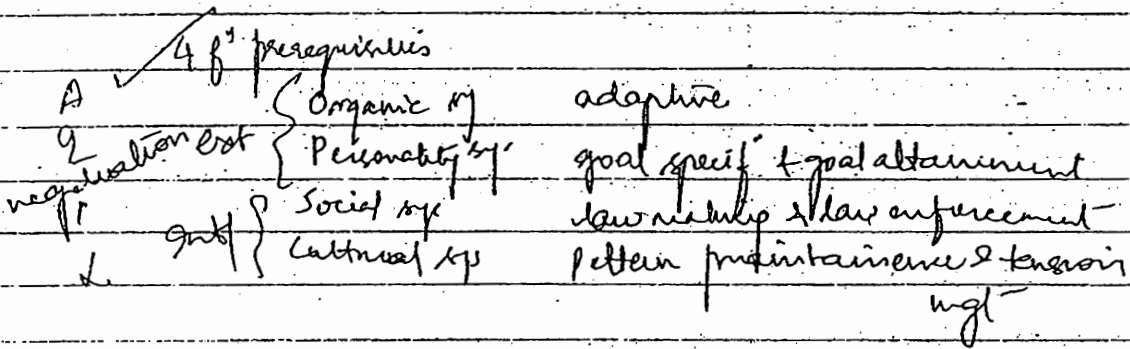 4 fⁿ prerequisites
A Organic sy adaptive
G Personality sy. goal specif & goal attainment
negotiation ext
I Social sys law making & law enforcement
L Cultural sys Pattern maintainence & tension
mgt